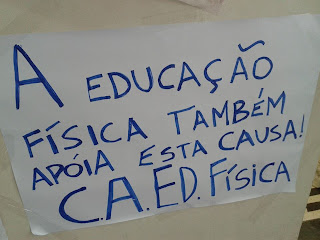 A EDUCAÇÃO
FÍSICA TAMBÉM
APÓIA ESTA CAUSA!
C.A.ED.FÍSICA